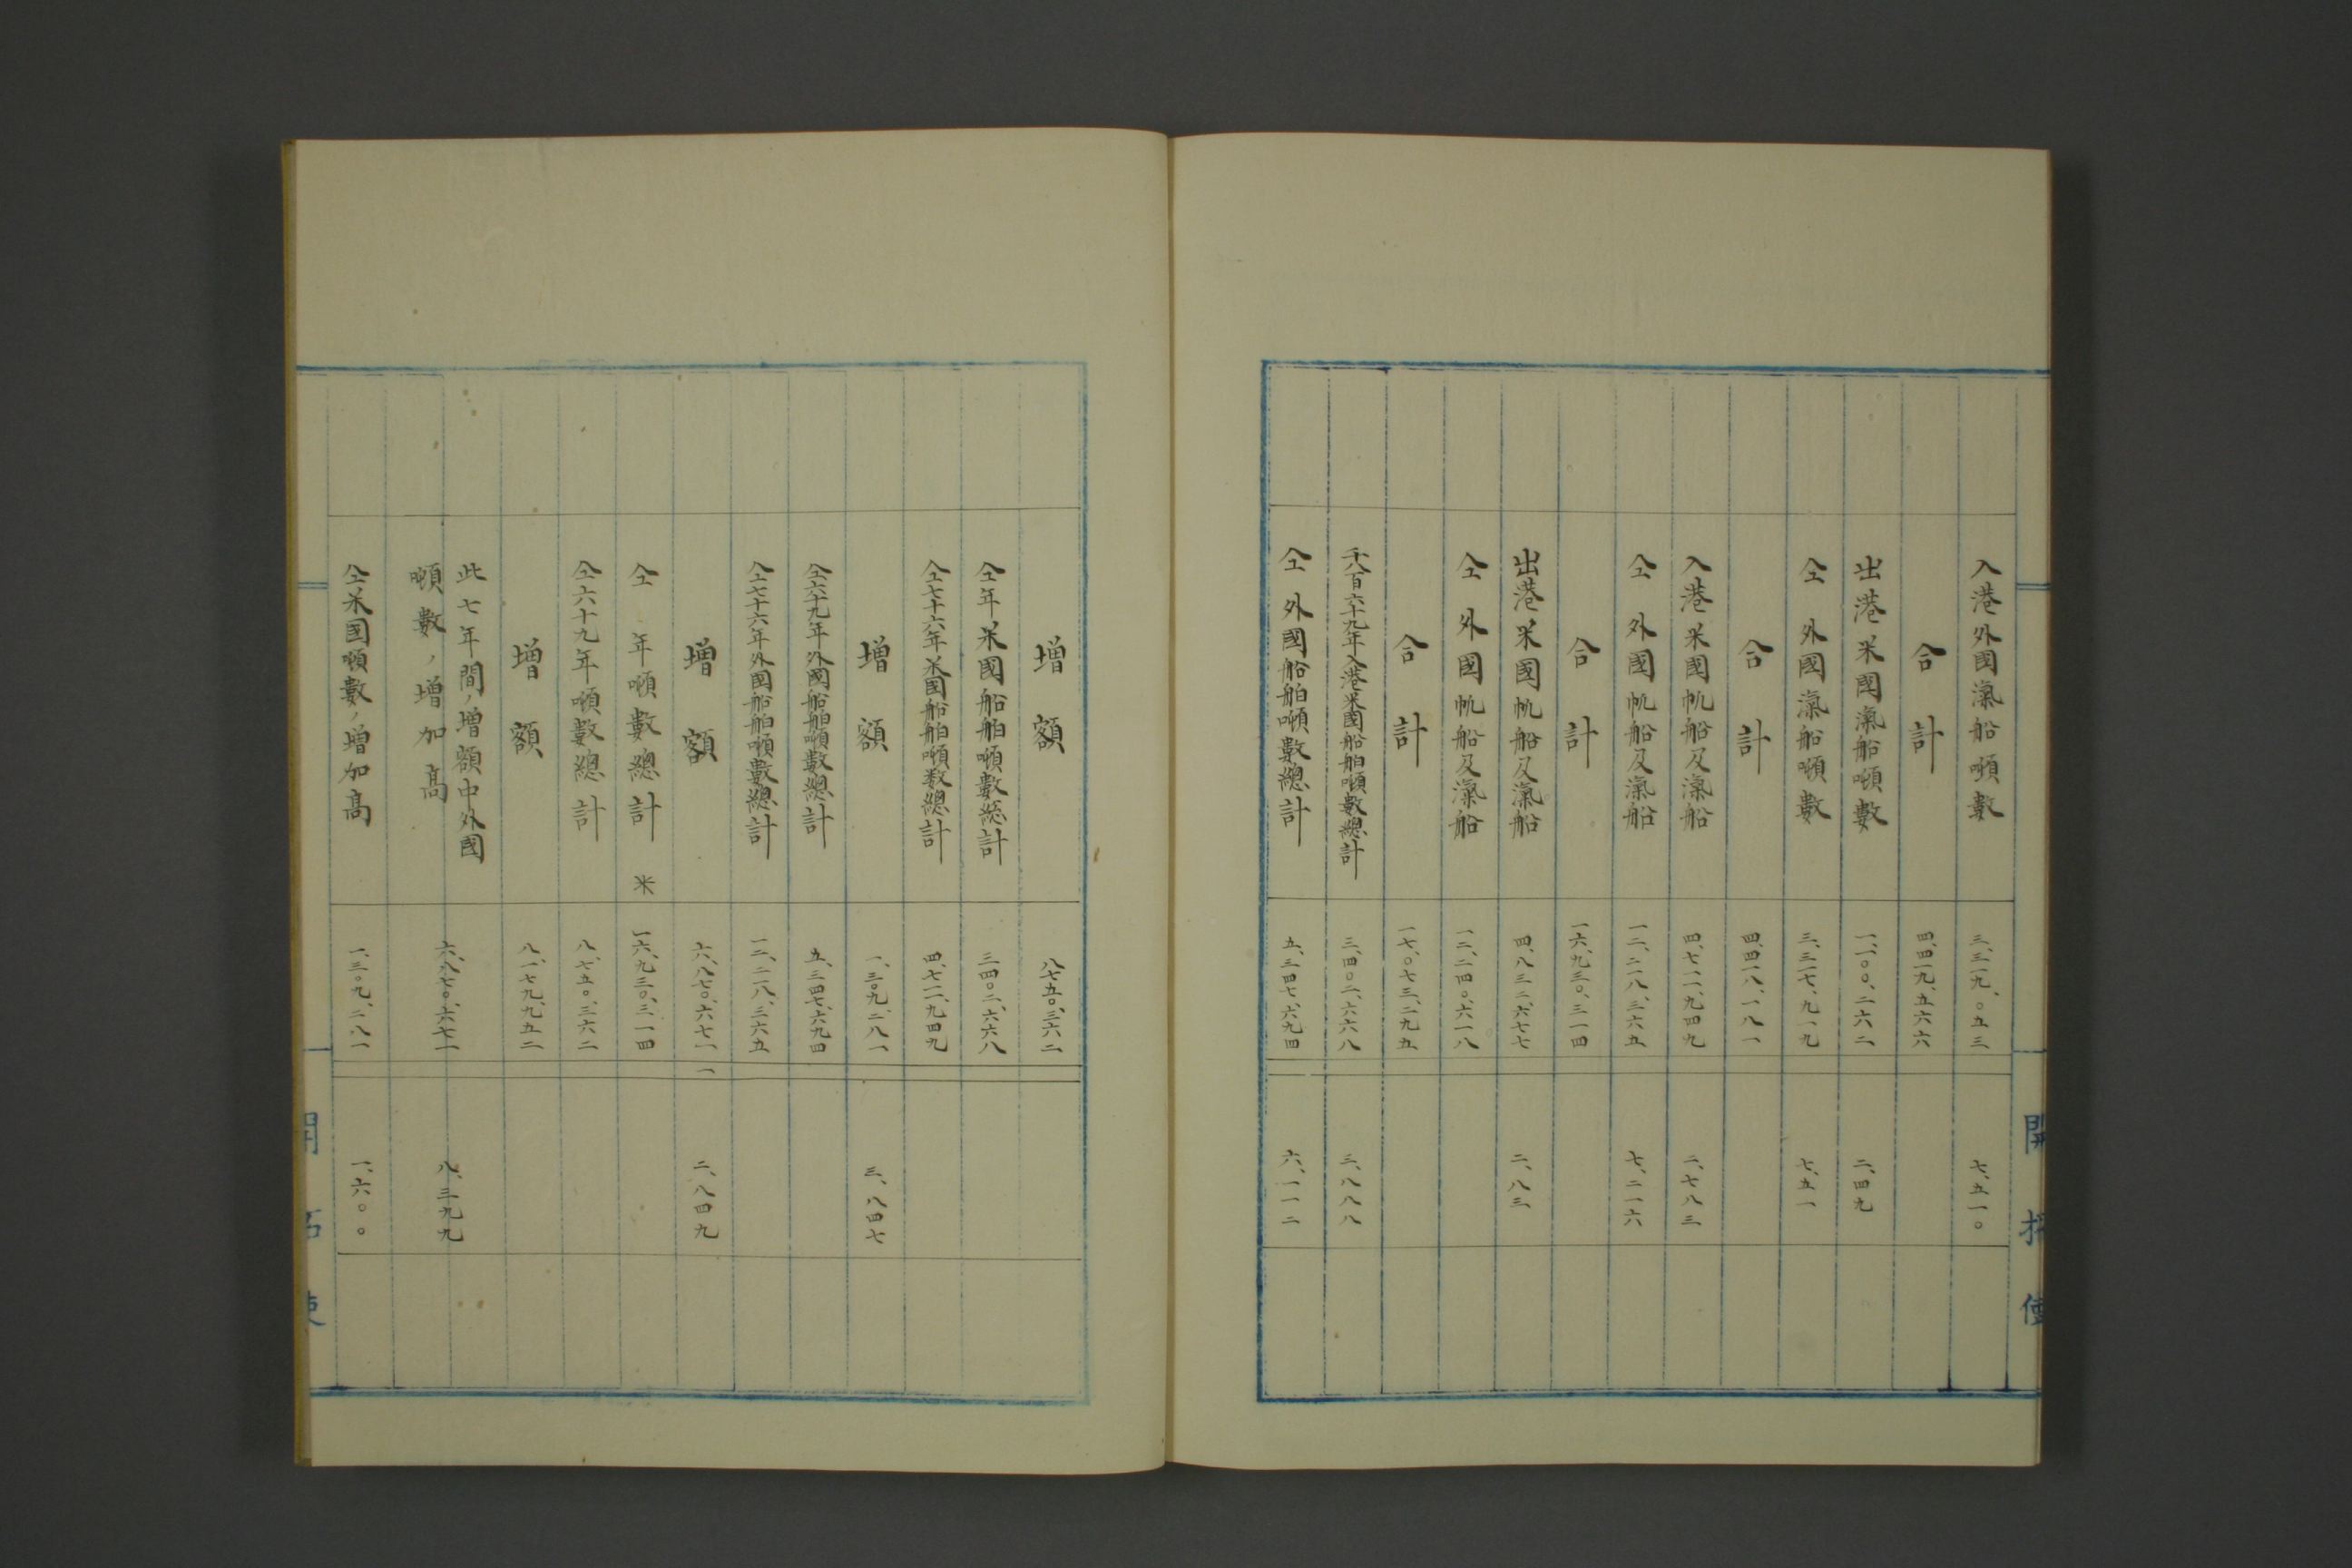 入港外國滊船噸數　三、三一九、〇五三　七、五一〇
合計　四、四一九、五六六
出港米國滊船噸數　一、一〇〇、二六二　二、四九
仝外國滊船噸數　三、三一七、九一九　七、五一
合計　四、四一八、一八一
入港米國帆船及滊船　四、七一一、九四九　二、七八三
仝外國帆船及滊船　一二、二一八、三六五　七、二一六
合計　一六、九三〇、三一四
出港米國帆船及滊船　四、八三二、六七七　二、八三
仝外國帆船及滊船　一二、二四〇、六一八
合計　一七、〇七三、二九五
千八百六十九年入港米國船舶噸數總計　三、四〇二、六六八　三、八八八
仝外國船舶噸數總計　五、三四七、六九四　六、一一二
開拓使
增額　八七五〇、三六二
仝年米國船舶噸數總計　三四〇二、六六八
仝七十六年米國船舶噸数總計　四、七一一、九四九
增額　一、三〇九、二八一　三、八四七
仝六十九年外國船舶噸數總計　五、三四七、六九四
仝七十六年外國船舶噸數總計　一二、二一八、三六五
增額　六、八七〇、六七一　一二、八四九
仝年噸數總計　米　一六、九三〇、三一四
仝六十九年噸數總計　八、七五〇、三六二
增額　八、一七九、九五二
此七年間ノ增額中外國
噸數ノ增加高　六、八七〇、六七一　八、三九九
仝米國噸數ノ增加高　一、三〇九、二八一　一、六〇〇